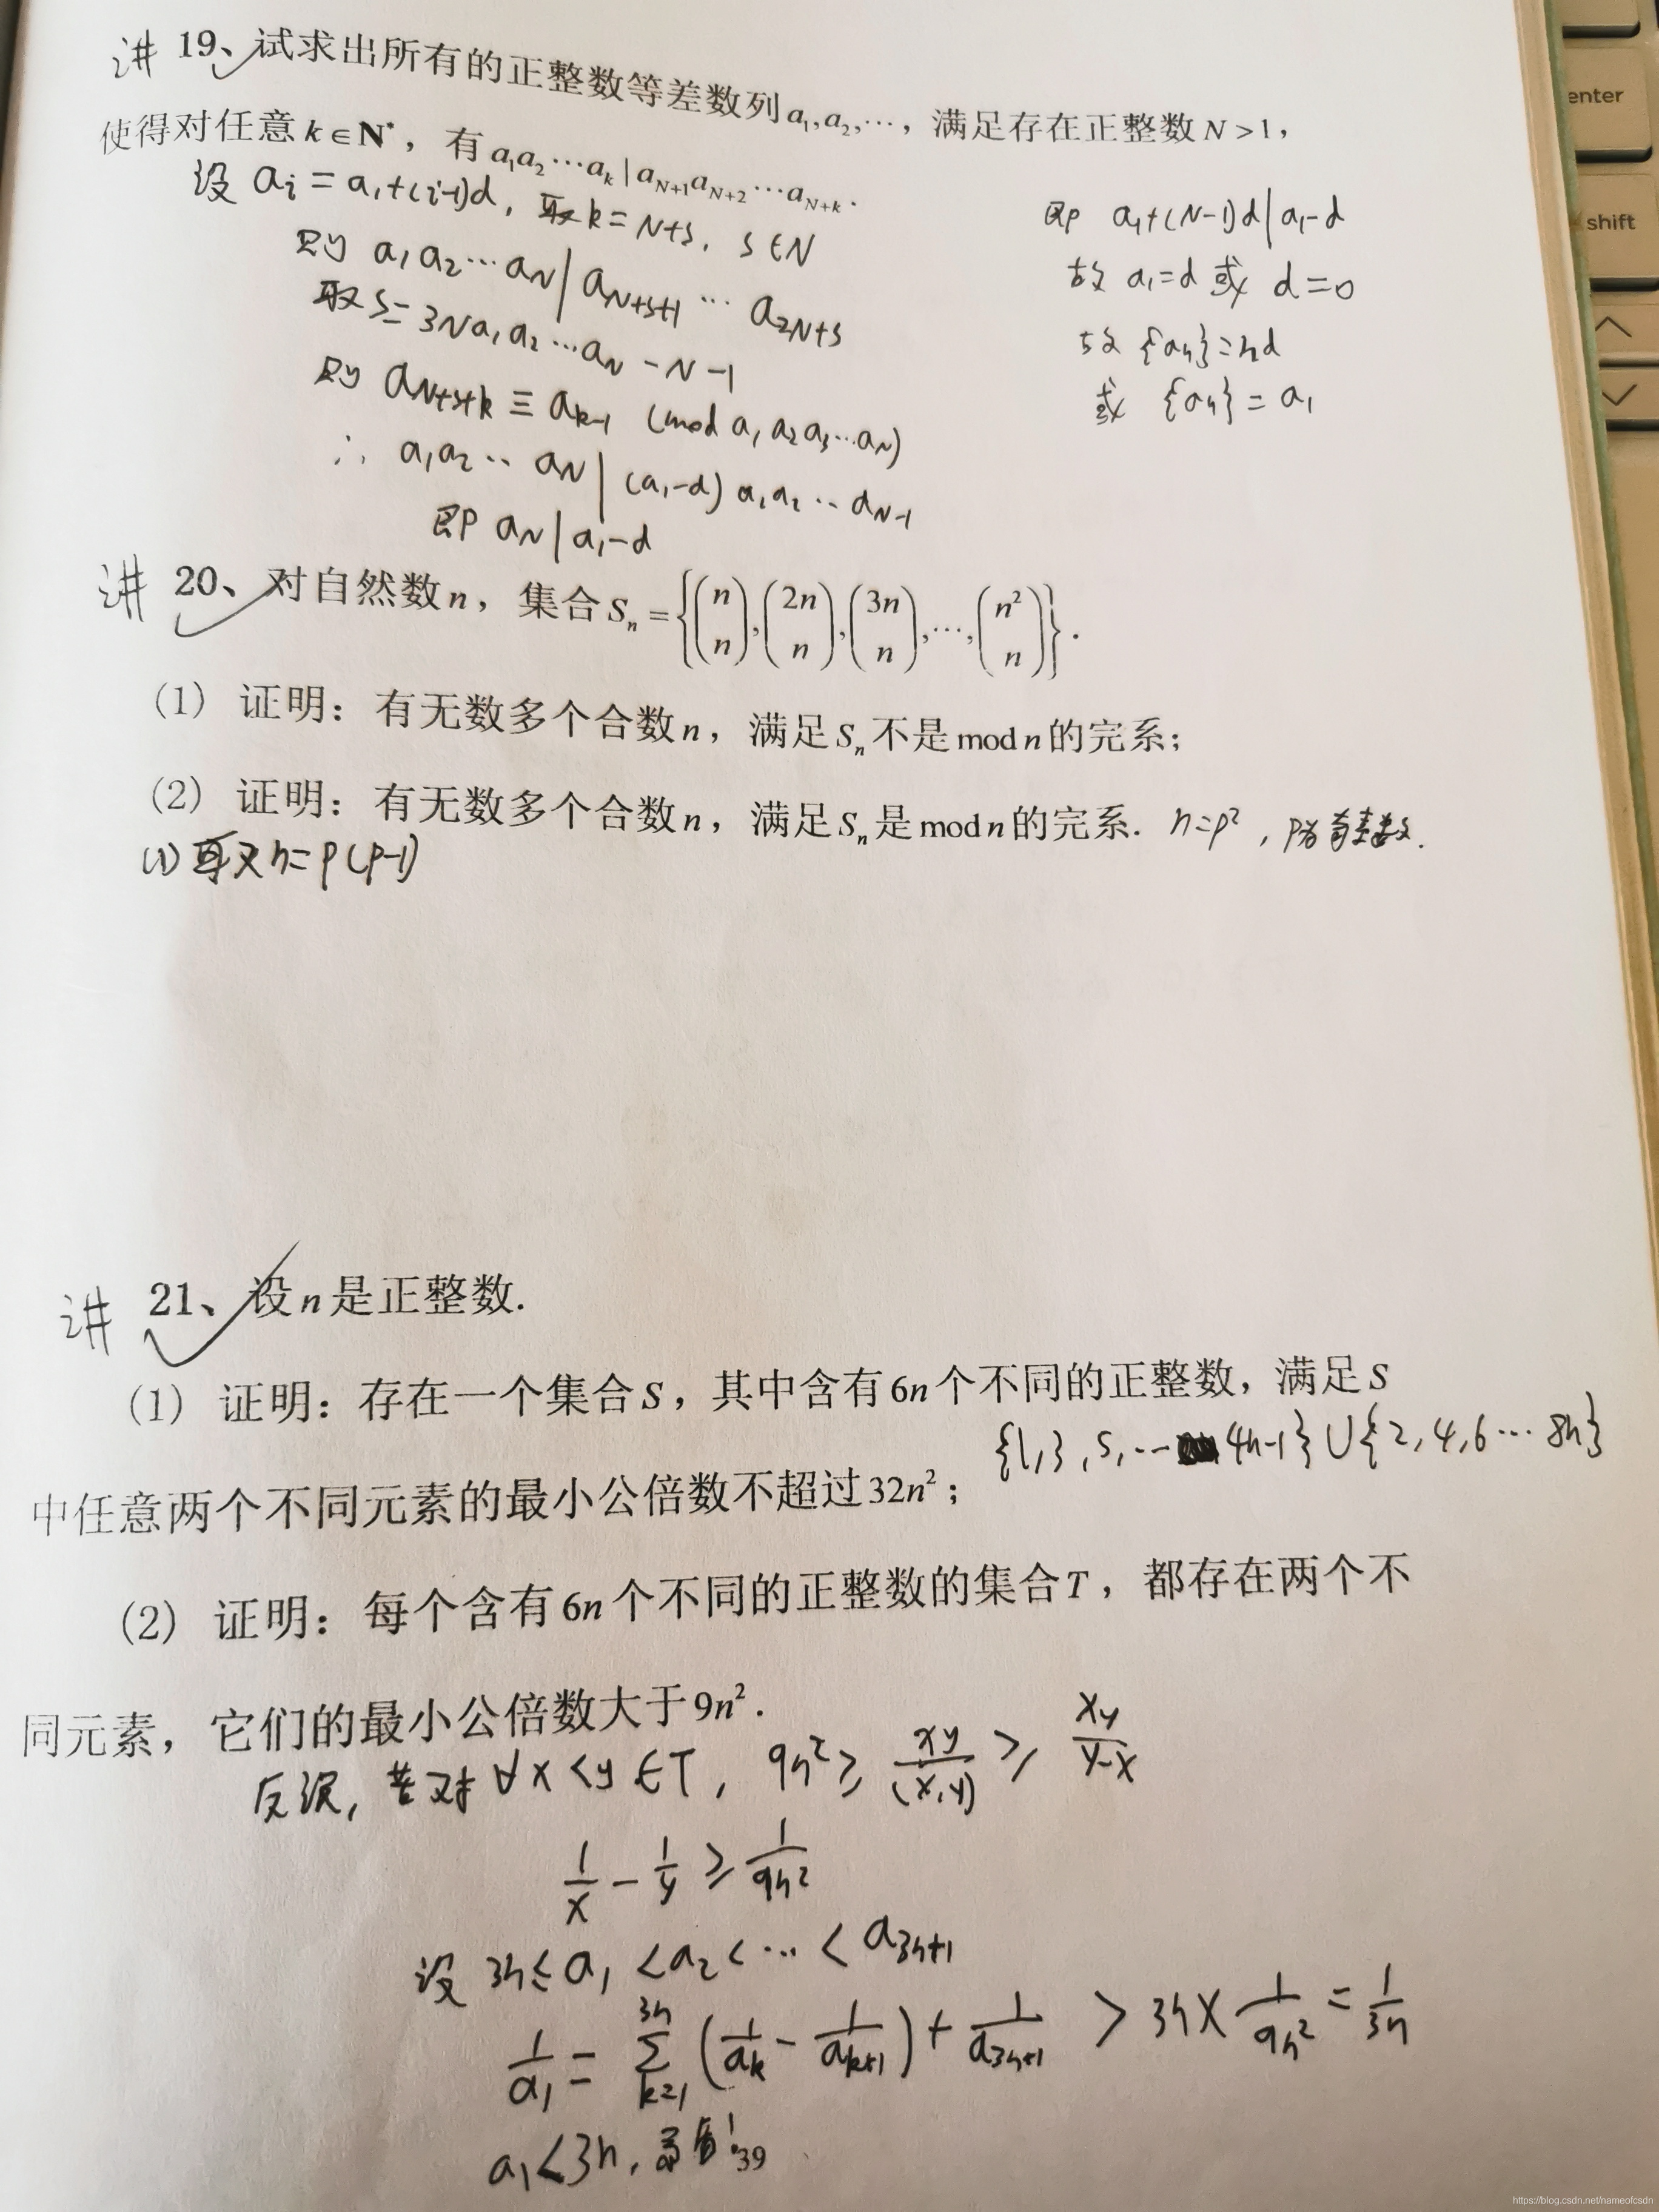 讲 19、试求出所有的正整数等差数列 a₁,a₂,…，满足存在正整数 N >1，
使得对任意 k∈N*，有 a₁a₂…aₖ | a_{N+1}a_{N+2}…a_{N+k}.
设 aᵢ = a₁+(i-1)d, 取k=N+s, s∈N
则 a₁a₂…a_N | a_{N+s+1} … a_{2N+s}
取s=3Na₁a₂…a_N -N-1
则 a_{N+s+k} ≡ a_{k-1} (mod a₁a₂a₃…a_N)
∴ a₁a₂…a_N | (a₁-d) a₁a₂…a_{N-1}
即 a_N | a₁-d
即 a₁+(N-1)d | a₁-d
故 a₁=d 或 d=0
故 {aₙ}=nd
或 {aₙ}=a₁
讲 20、对自然数 n，集合 Sₙ = {(n n),(2n n),(3n n),…,(n² n)}.
(1) 证明：有无数多个合数 n，满足 Sₙ 不是 mod n 的完系；
(2) 证明：有无数多个合数 n，满足 Sₙ 是 mod n 的完系. n=p²，p为奇素数.
(1) 取n=p(p-1)
讲 21、设 n 是正整数.
(1) 证明：存在一个集合 S，其中含有 6n 个不同的正整数，满足 S
{1,3,5,… 4n-1}∪{2,4,6…8n}
中任意两个不同元素的最小公倍数不超过 32n²；
(2) 证明：每个含有 6n 个不同的正整数的集合 T，都存在两个不
同元素，它们的最小公倍数大于 9n².
反设, 若对 ∀x<y∈T, 9n² ≥ xy/(x,y) ≥ xy/(y-x)
1/x - 1/y ≥ 1/9n²
设 3n≤a₁<a₂<…<a_{3n+1}
1/a₁ = ∑_{k=1}^{3n} (1/aₖ - 1/a_{k+1}) + 1/a_{3n+1} > 3n×1/9n² = 1/3n
a₁<3n, 矛盾!
39
enter
shift
https://blog.csdn.net/nameofcsdn